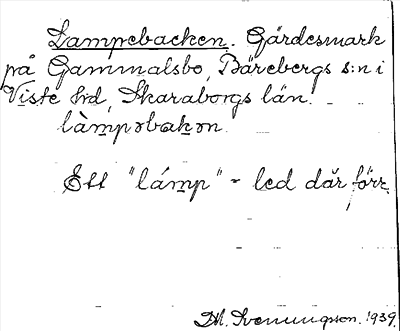 Lampebacken. Gärdesmark
på Gammalsbo, Bärebergs s:n i
Viste hd, Skaraborgs län.
làm̲pəbak̲ən.
Ett "lám̲p" - led där förr.
M. Svenungsson. 1939.